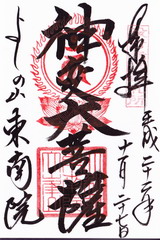 奉拝
平成二十二年
十一月二十七日
神変大菩薩
よしの山
東南院